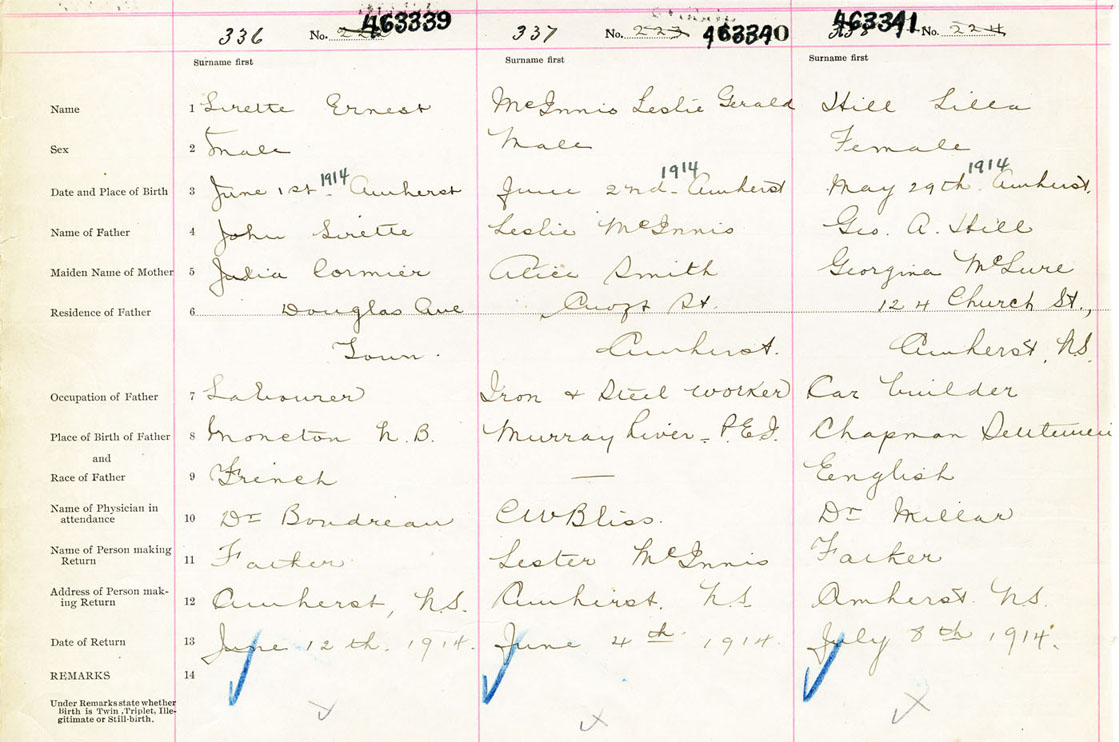 336 No. 222 463339 337 No. 223 463340 338 463341 No. 224
Surname first Surname first Surname first
Name 1 Sirette Ernest McInnis Leslie Gerald Hill Lilla
Sex 2 Male Male Female
Date and Place of Birth 3 June 1st 1914 Amherst June 2nd - 1914 Amherst May 29th 1914 Amherst.
Name of Father 4 John Sirette Leslie McInnis Geo. A. Hill
Maiden Name of Mother 5 Julia Cormier Alice Smith Georgina McLure
Residence of Father 6 Douglas Ave Croft St. 124 Church St.,
Town. Amherst. Amherst, N.S.
Occupation of Father 7 Labourer Iron & Steel worker Car builder
Place of Birth of Father 8 Moncton N.B. Murray River - P.E.I. Chapman
and
Race of Father 9 French — English
Name of Physician in
attendance 10 Dr Boudreau CW Bliss. Dr Millar
Name of Person making
Return 11 Father Lester McInnis Father
Address of Person mak-
ing Return 12 Amherst, N.S. Amherst. N.S. Amherst. N.S.
Date of Return 13 June 12th. 1914. June 4th 1914. July 8th 1914.
REMARKS 14
Under Remarks state whether
Birth is Twin, Triplet, Ille-
gitimate or Still-birth.